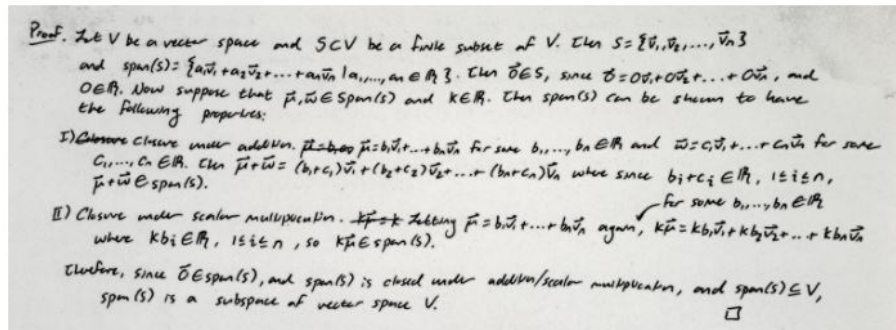 Proof. Let V be a vector space and S⊂V be a finite subset of V. Then S={v⃗₁,v⃗₂,...,v⃗ₙ}
and span(S)={a₁v⃗₁+a₂v⃗₂+...+aₙv⃗ₙ|a₁,...,aₙ∈ℝ}. Then 0⃗∈S, since 0⃗=0v⃗₁+0v⃗₂+...+0v⃗ₙ, and
0∈ℝ. Now suppose that μ⃗,w⃗∈Span(s) and k∈ℝ. Then span(s) can be shown to have
the following properties:
I) Closure Closure under addition. μ⃗=b₁v⃗₁+...+bₙv⃗ₙ for some b₁,...,bₙ∈ℝ and w⃗=c₁v⃗₁+...+cₙv⃗ₙ for some
c₁,...,cₙ∈ℝ. Then μ⃗+w⃗=(b₁+c₁)v⃗₁+(b₂+c₂)v⃗₂+...+(bₙ+cₙ)v⃗ₙ where since bᵢ+cᵢ∈ℝ, 1≤i≤n,
μ⃗+w⃗∈span(s).
for some b₁,...,bₙ∈ℝ
II) Closure under scalar multiplication. kμ⃗=k Letting μ⃗=b₁v⃗₁+...+bₙv⃗ₙ again, kμ⃗=kb₁v⃗₁+kb₂v⃗₂+...+kbₙv⃗ₙ
where kbᵢ∈ℝ, 1≤i≤n, so kμ⃗∈span(s).
Therefore, since 0⃗∈span(s), and span(s) is closed under addition/scalar multiplication, and span(s)⊆V,
span(s) is a subspace of vector space V.
□